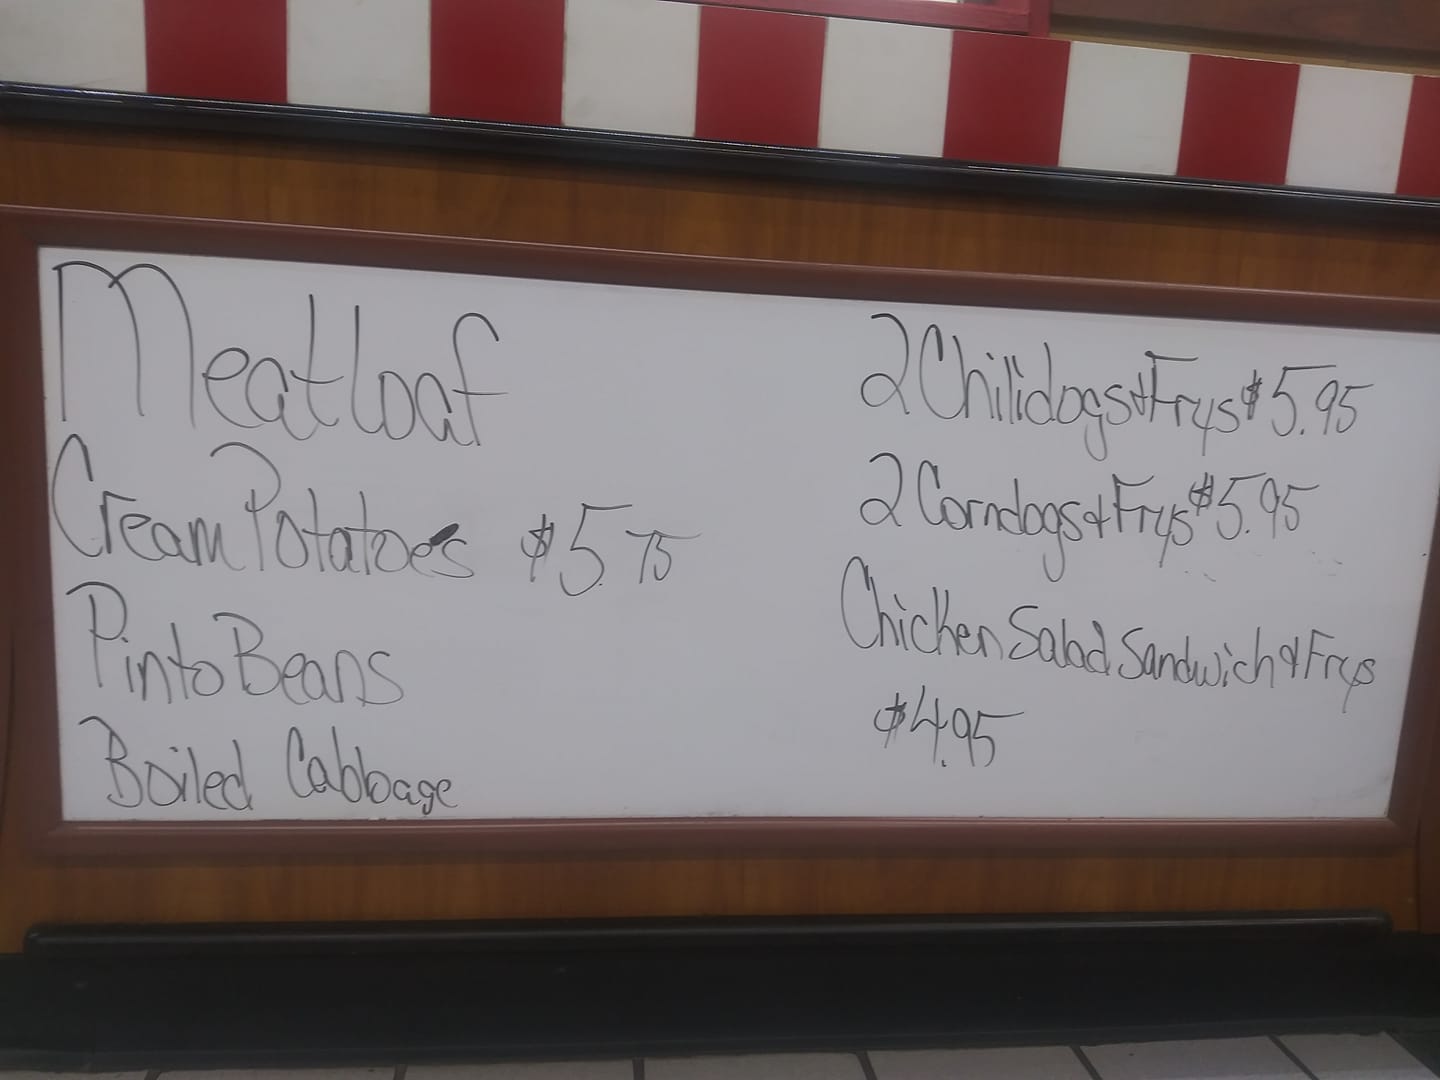 Meatloaf
Cream Potatoes $5.75
Pinto Beans
Boiled Cabbage
2 Chilidogs & Frys $5.95
2 Corndogs & Frys $5.95
Chicken Salad Sandwich & Frys
$4.95